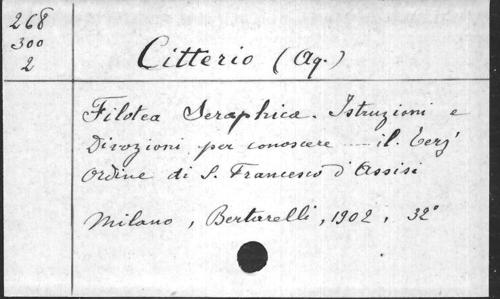 268
300
2
Citterio (Ag.)
Filotea Seraphica. Istruzioni e
Divozioni per conoscere ..... il Terz'
Ordine di S. Francesco d'Assisi
Milano, Bertarelli, 1902, 32°